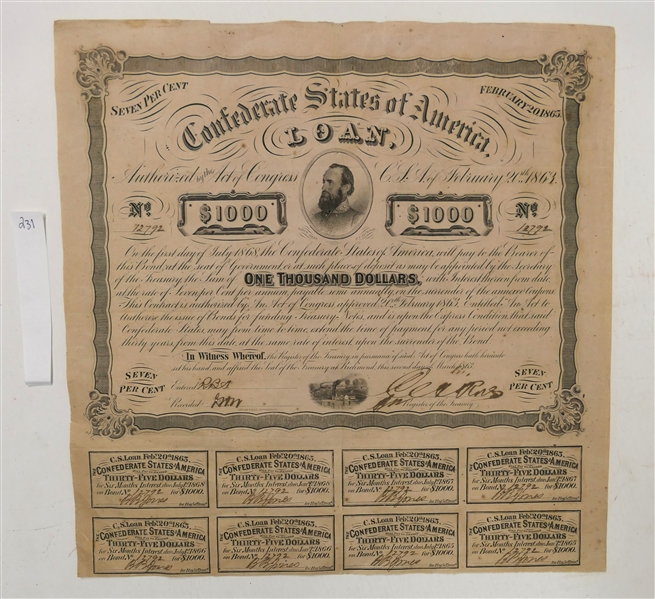 231
SEVEN PER CENT
FEBRUARY 20, 1863.
Confederate States of America,
LOAN,
Authorized by the Act of Congress C.S.A. of February 20th 1863.
No. No.
$1000 $1000
12792 12792
On the first day of July 1868, the Confederate States of America, will pay to the Bearer of
this Bond, at the seat of Government or at such place of deposit as may be appointed by the Secretary
of the Treasury, the Sum of ONE THOUSAND DOLLARS, with Interest thereon from date,
at the rate of Seven per Cent per annum, payable semi annually, on the surrender of the annexed Coupons
This Contract is authorized by An Act of Congress approved 20th February 1863, entitled "An Act to
authorize the issue of Bonds for funding Treasury Notes, and is upon the Express Condition, that said
Confederate States may from time to time, extend the time of payment for any period not exceeding
thirty years from this date at the same rate of interest upon the surrender of the Bond.
In Witness Whereof, the Register of the Treasury, in pursuance of said Act of Congress hath hereunto
set his hand, and affixed the Seal of the Treasury, at Richmond, this second day of March 1863.
SEVEN PER CENT
SEVEN PER CENT
Entered
Recorded
Register of the Treasury
C.S. Loan Feby. 20th 1863.
THE CONFEDERATE STATES OF AMERICA
THIRTY-FIVE DOLLARS
for Six Months Interest due July 1st 1868
on Bond, No 12792 for $1000.
C.S. Loan Feby. 20th 1863.
THE CONFEDERATE STATES OF AMERICA
THIRTY-FIVE DOLLARS
for Six Months Interest due Jany. 1st 1868
on Bond, No 12792 for $1000.
C.S. Loan Feby. 20th 1863.
THE CONFEDERATE STATES OF AMERICA
THIRTY-FIVE DOLLARS
for Six Months Interest due July 1st 1867
on Bond, No 12792 for $1000.
C.S. Loan Feby. 20th 1863.
THE CONFEDERATE STATES OF AMERICA
THIRTY-FIVE DOLLARS
for Six Months Interest due Jany. 1st 1867
on Bond, No 12792 for $1000.
C.S. Loan Feby. 20th 1863.
THE CONFEDERATE STATES OF AMERICA
THIRTY-FIVE DOLLARS
for Six Months Interest due July 1st 1866
on Bond, No 12792 for $1000.
C.S. Loan Feby. 20th 1863.
THE CONFEDERATE STATES OF AMERICA
THIRTY-FIVE DOLLARS
for Six Months Interest due Jany. 1st 1866
on Bond, No 12792 for $1000.
C.S. Loan Feby. 20th 1863.
THE CONFEDERATE STATES OF AMERICA
THIRTY-FIVE DOLLARS
for Six Months Interest due July 1st 1865
on Bond, No 12792 for $1000.
C.S. Loan Feby. 20th 1863.
THE CONFEDERATE STATES OF AMERICA
THIRTY-FIVE DOLLARS
for Six Months Interest due Jany. 1st 1865
on Bond, No 12792 for $1000.